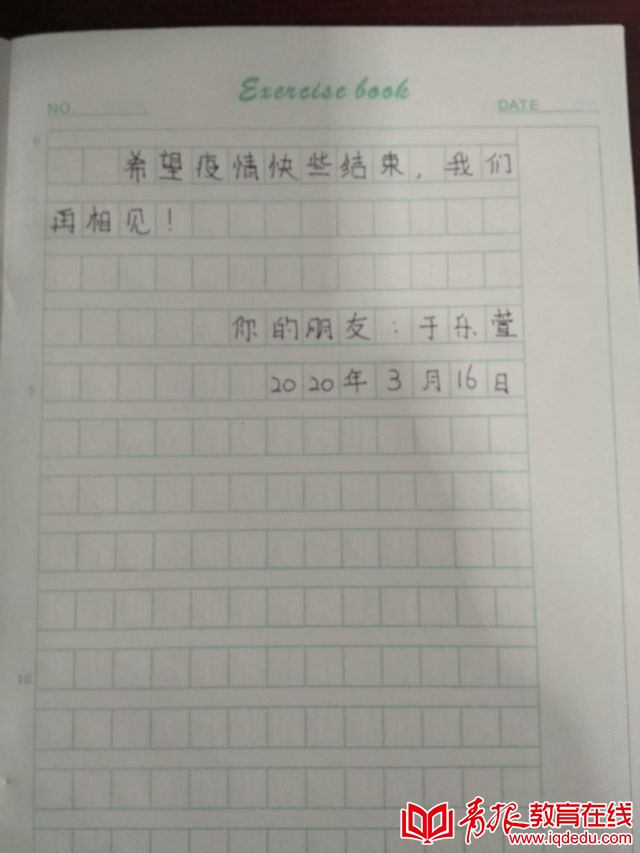 Exercise book
NO.
DATE
0
希望疫情快些结束，我们
再相见！
你的朋友：于乐萱
5
2020年3月16日
10
青报教育在线
www.iqdedu.com